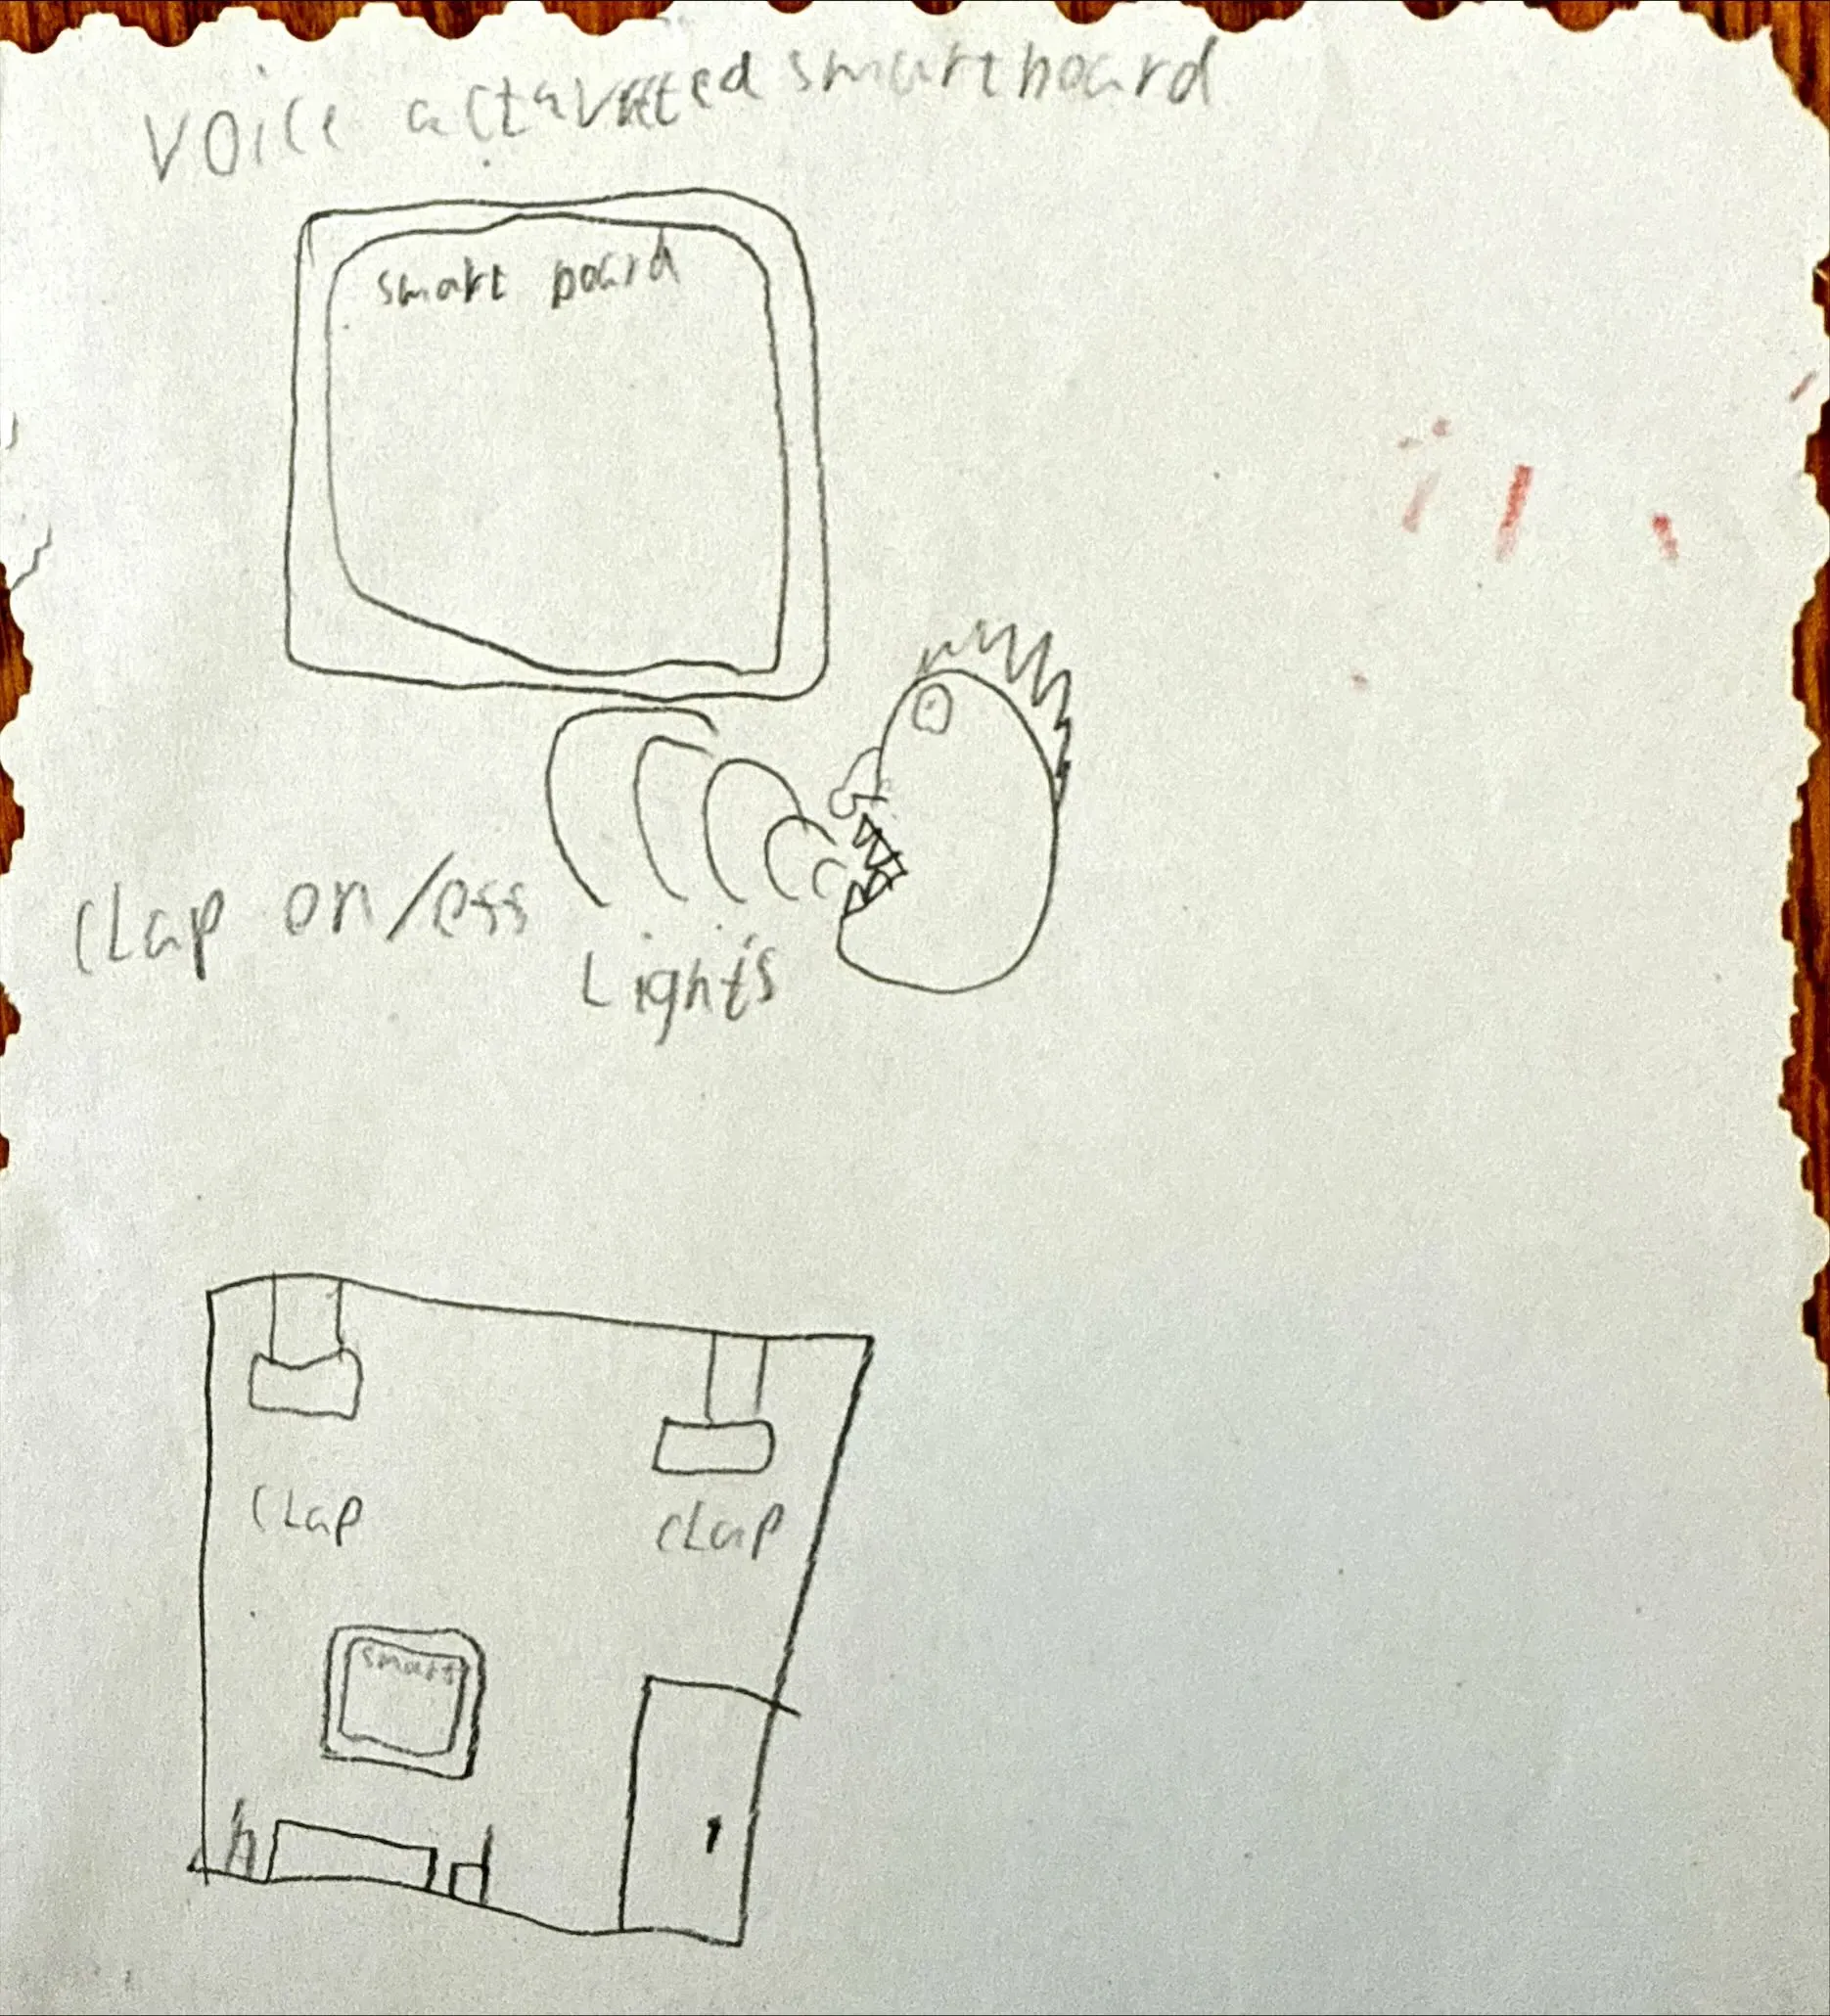 voice actavated smartboard
smart board
CLap on/off
Lights
CLap cLap
smart